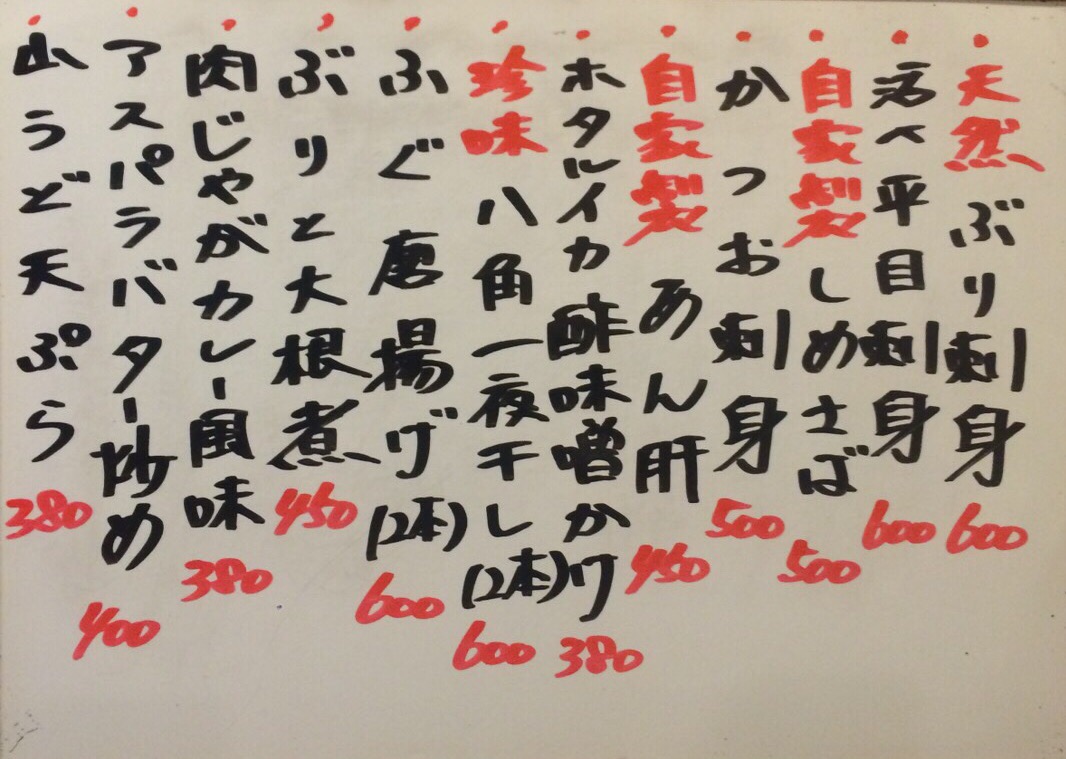 ・天然ぶり刺身 600
・活〆平目刺身 600
・自家製しめさば 500
・かつお刺身 500
・自家製あん肝 450
・ホタルイカ酢味噌かけ 380
・珍味八角一夜干し(2本) 600
・ふぐ唐揚げ(2本) 600
・ぶりと大根煮 450
・肉じゃがカレー風味 380
・アスパラバター炒め 400
・山うど天ぷら 380